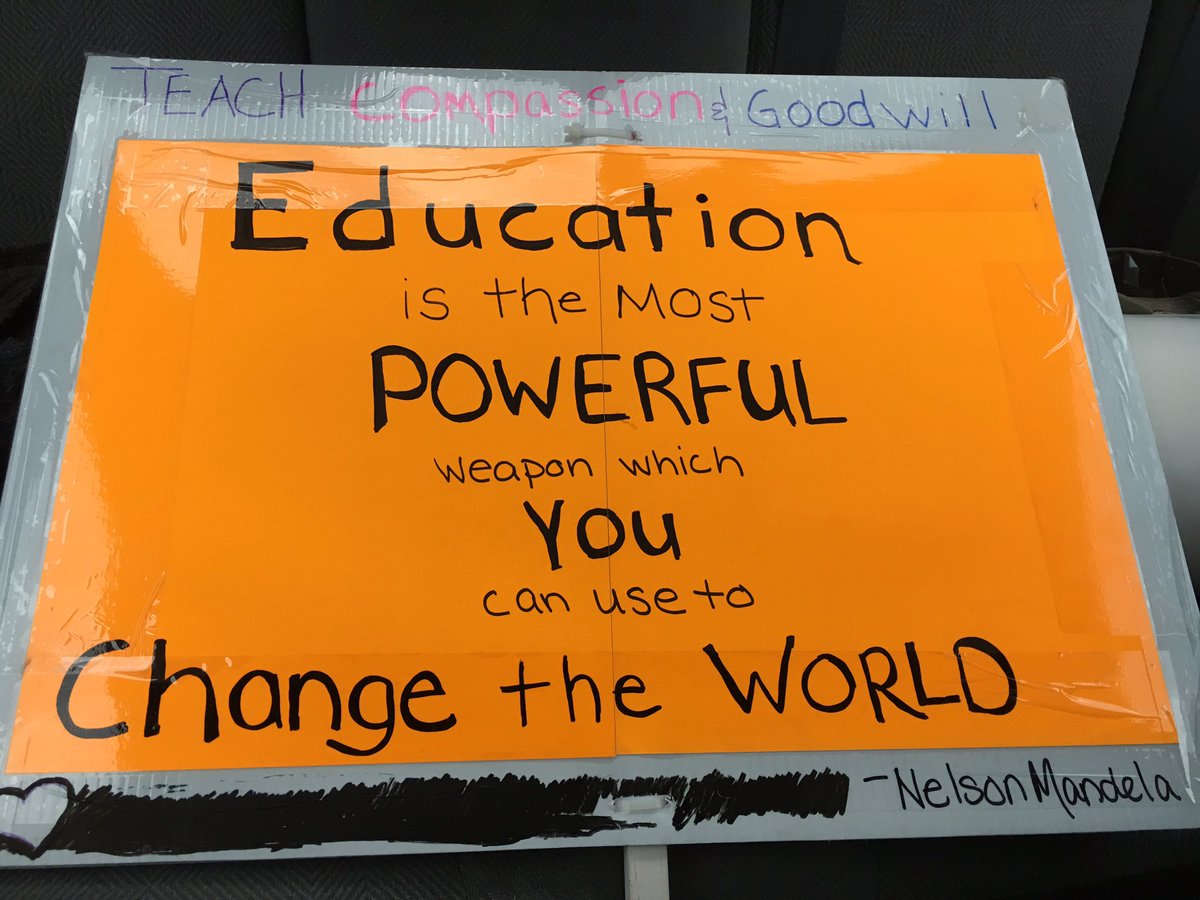 TEACH Compassion & Goodwill
Education
is the MOST
POWERFUL
weapon which
YOU
can use to
Change the WORLD
-Nelson Mandela